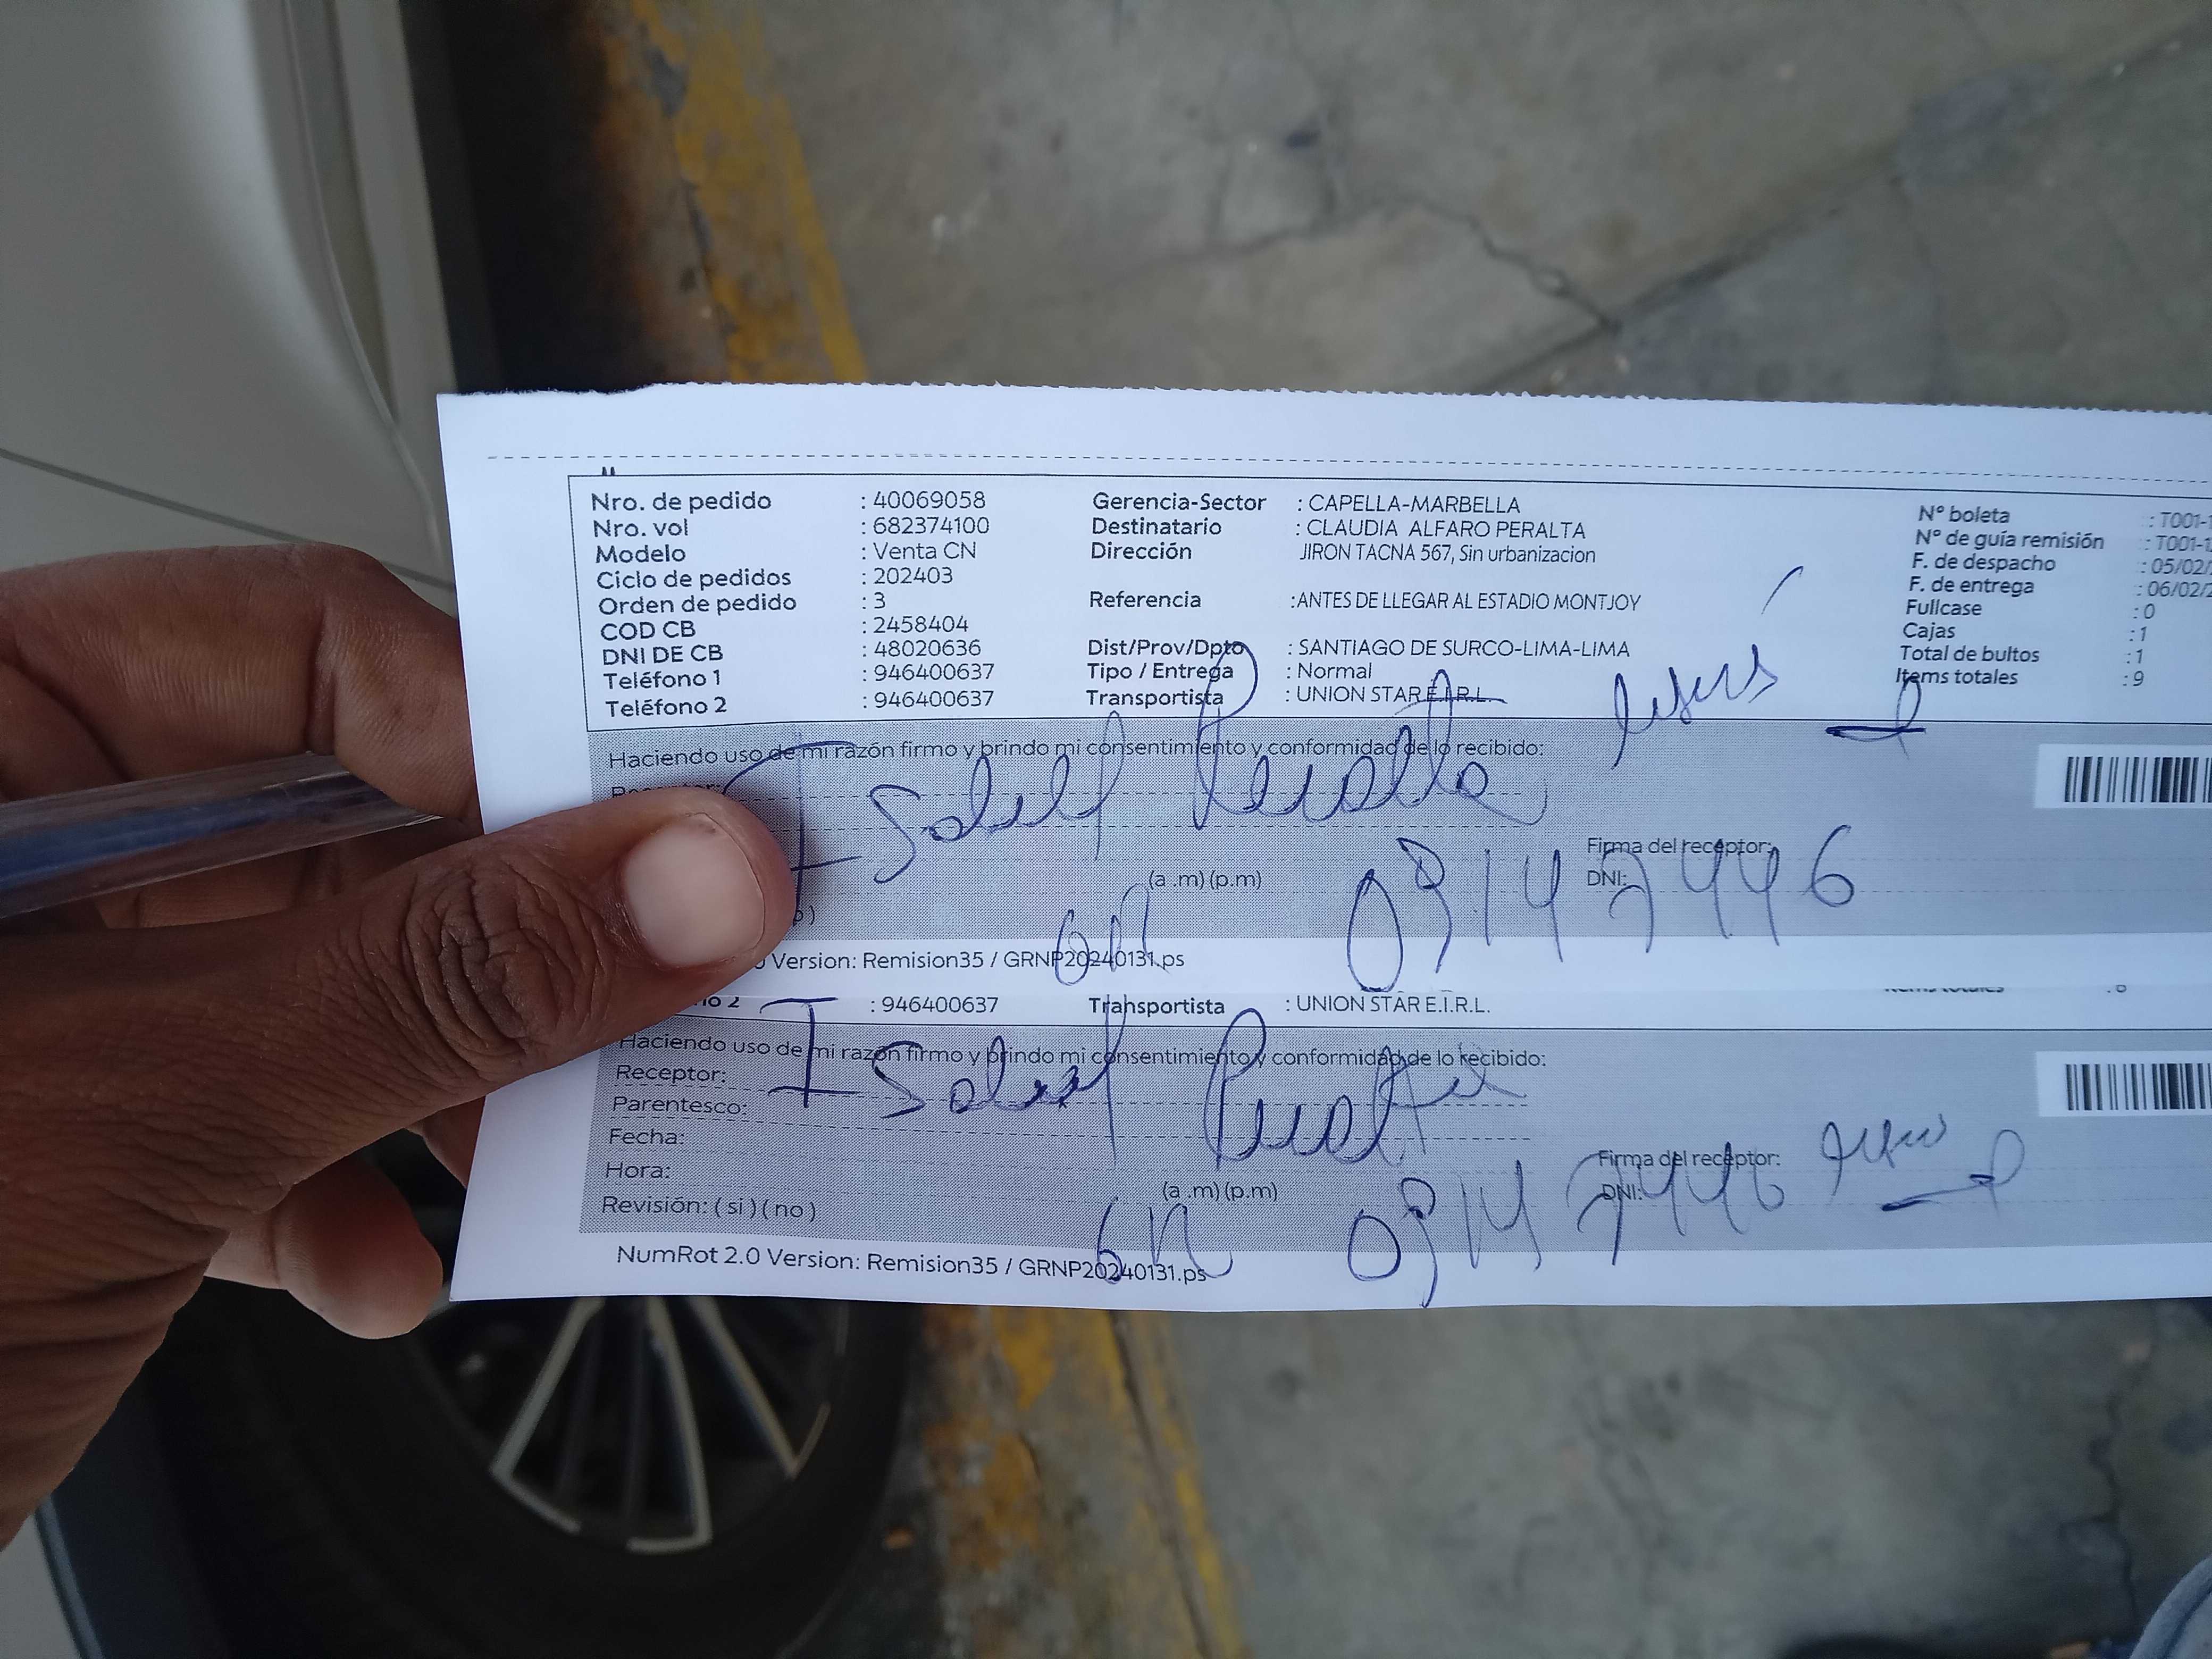 Nro. de pedido : 40069058 Gerencia-Sector : CAPELLA-MARBELLA Nº boleta : T001-1
Nro. vol : 682374100 Destinatario : CLAUDIA ALFARO PERALTA Nº de guía remisión : T001-1
Modelo : Venta CN Dirección JIRON TACNA 567, Sin urbanizacion F. de despacho : 05/02/
Ciclo de pedidos : 202403 F. de entrega : 06/02/2
Orden de pedido : 3 Referencia :ANTES DE LLEGAR AL ESTADIO MONTJOY Fullcase :0
COD CB : 2458404 Cajas :1
DNI DE CB : 48020636 Dist/Prov/Dpto : SANTIAGO DE SURCO-LIMA-LIMA Total de bultos :1
Teléfono 1 : 946400637 Tipo / Entrega : Normal Items totales :9
Teléfono 2 : 946400637 Transportista : UNION STAR E.I.R.L.
Haciendo uso de mi razón firmo y brindo mi consentimiento y conformidad de lo recibido:
Isabel Peralta
Firma del receptor:
(a .m) (p.m) DNI:
Version: Remision35 / GRNP20240131.ps
: 946400637 Transportista : UNION STAR E.I.R.L.
Haciendo uso de mi razón firmo y brindo mi consentimiento y conformidad de lo recibido:
Receptor: Isabel Peralta
Parentesco:
Fecha:
Firma del receptor:
Hora: (a .m) (p.m) DNI:
Revisión: ( si ) ( no )
NumRot 2.0 Version: Remision35 / GRNP20240131.ps